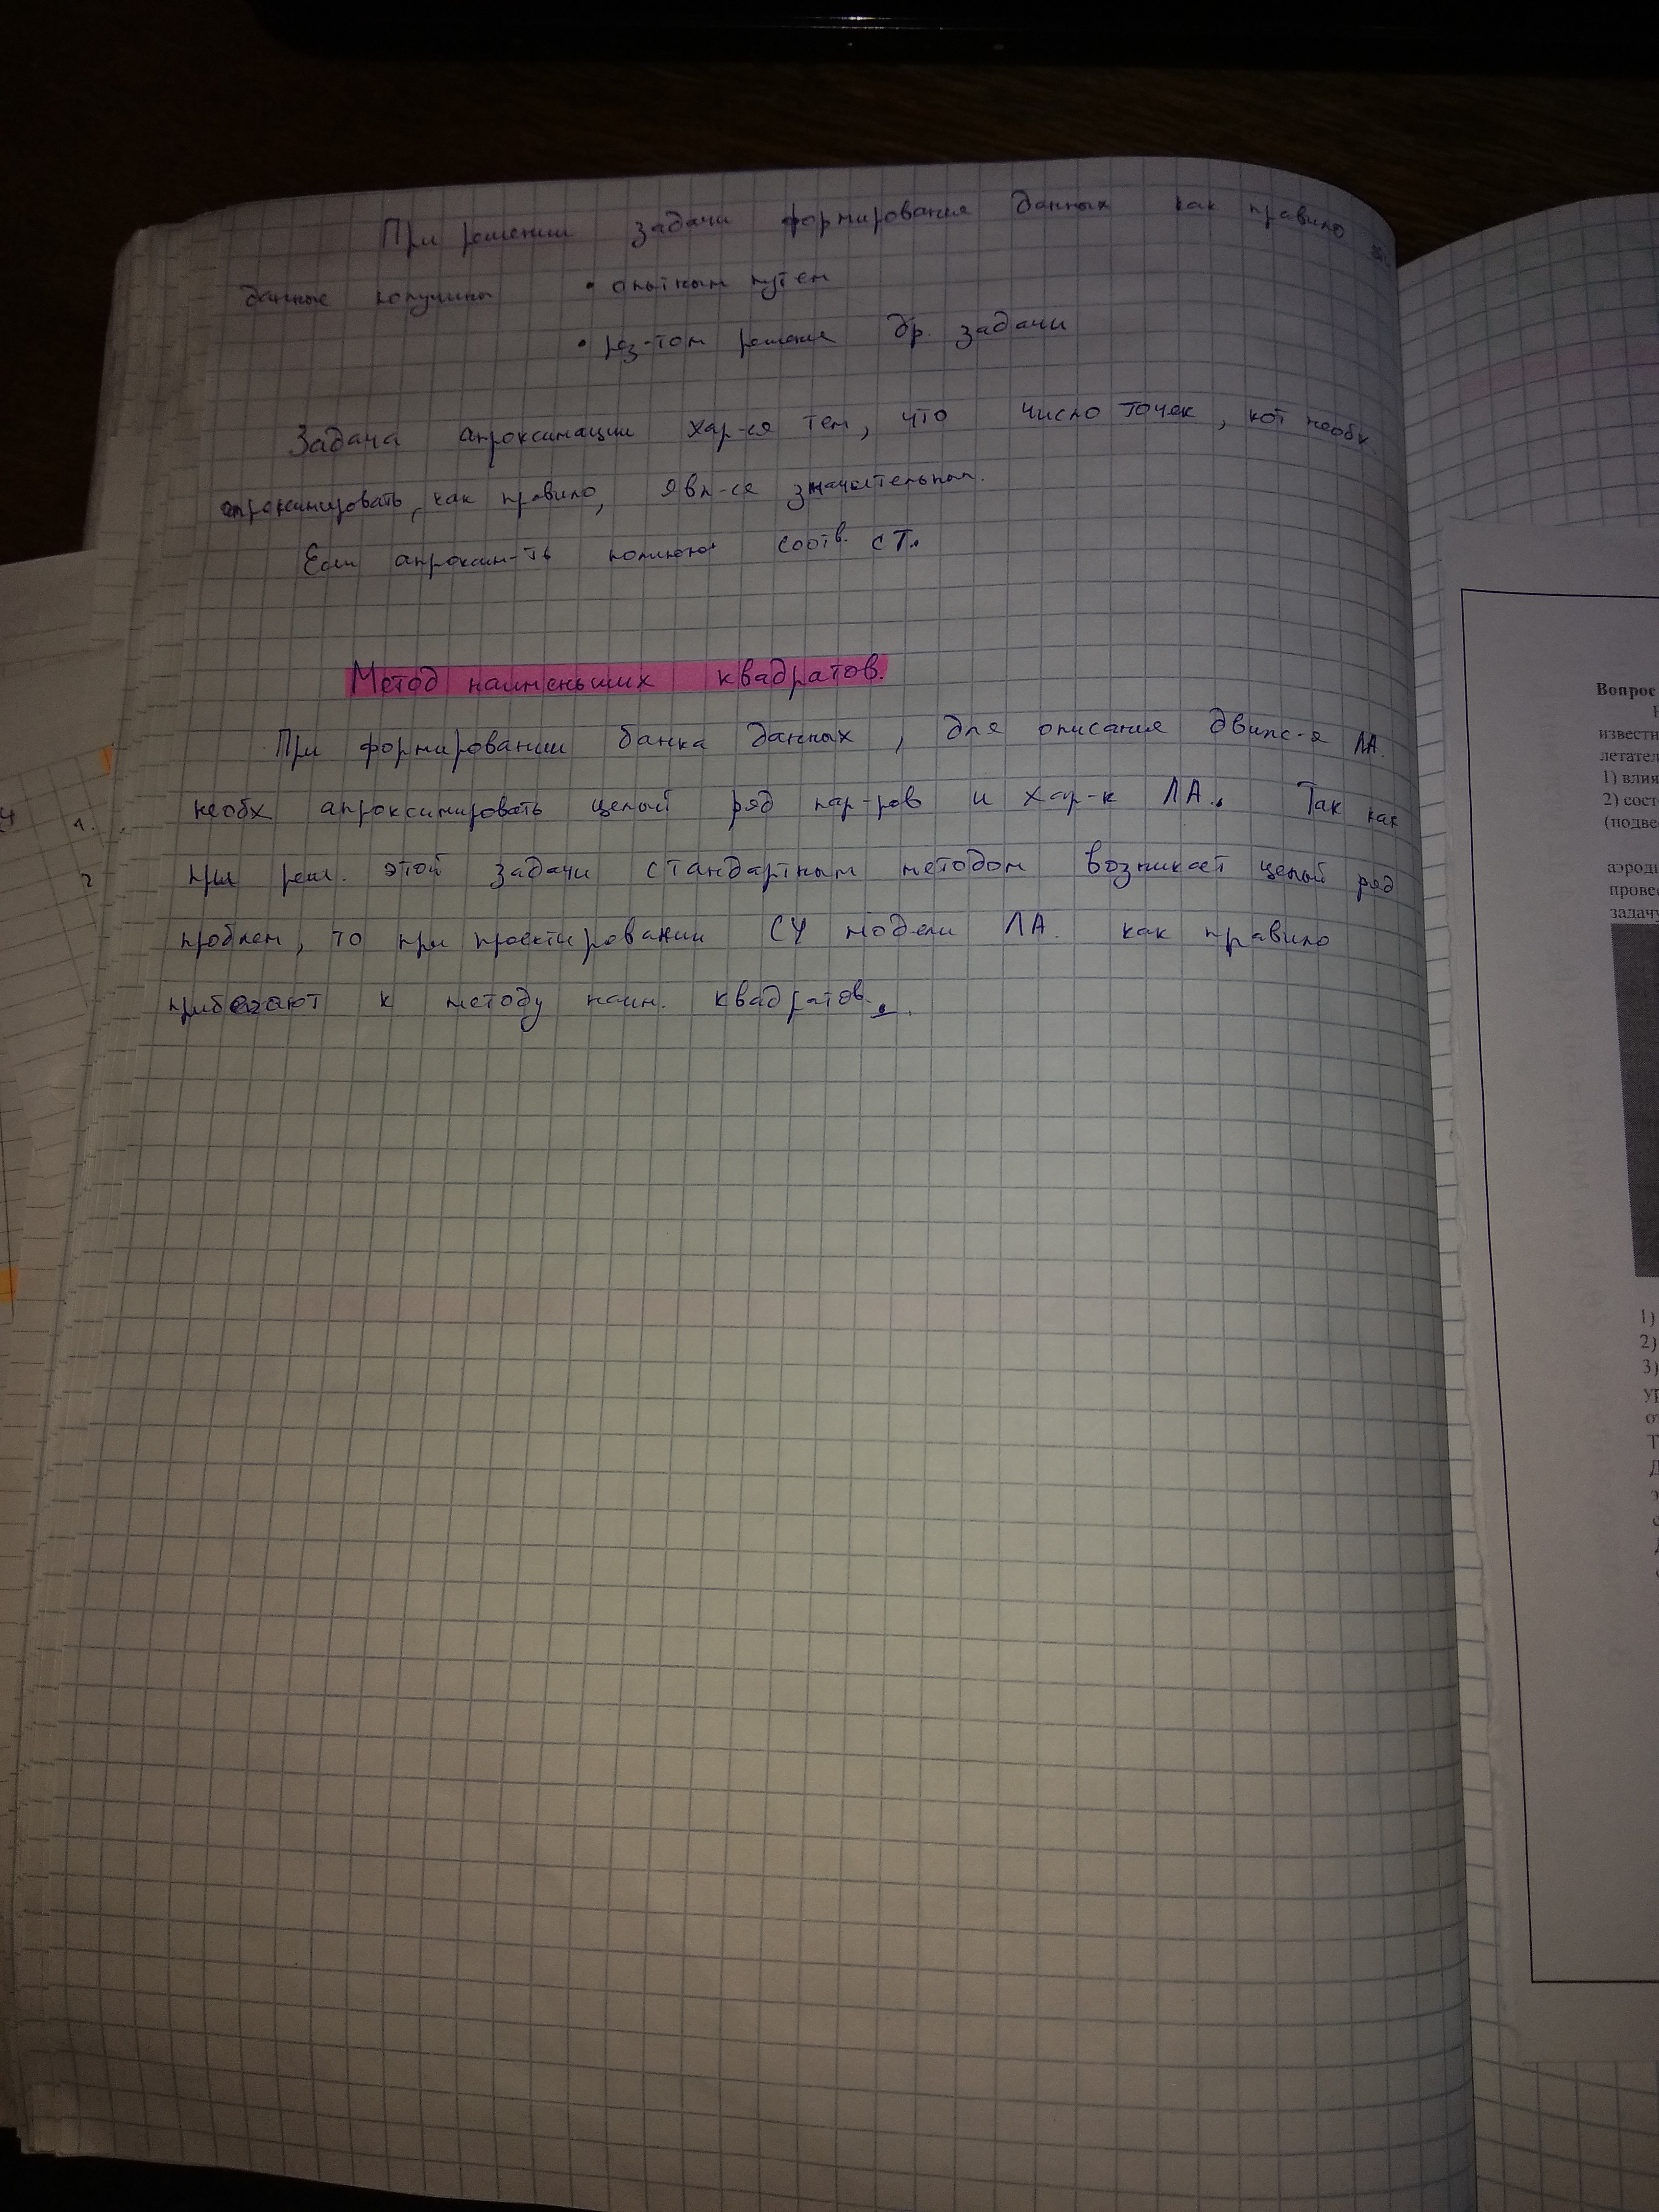 При решении задачи формирования данных как правило
данные получены • опытным путем
• рез-том решения др. задачи
Задача апроксимации хар-ся тем, что число точек, кот необх
апроксимировать, как правило, явл-ся значительным.
Если апроксим-ть полином соотв. ст.
Метод наименьших квадратов.
При формировании банка данных, для описания движ-я ЛА.
необх апроксимировать целый ряд пар-ров и хар-к ЛА. Так как
при реш. этой задачи стандартным методом возникает целый ряд
проблем, то при проектировании СУ модели ЛА. как правило
прибегают к методу наим. квадратов.
1.
2
Вопрос
известн
летател
1) влия
2) сост
(подве
аэроди
провес
задачу
1)
2)
3)